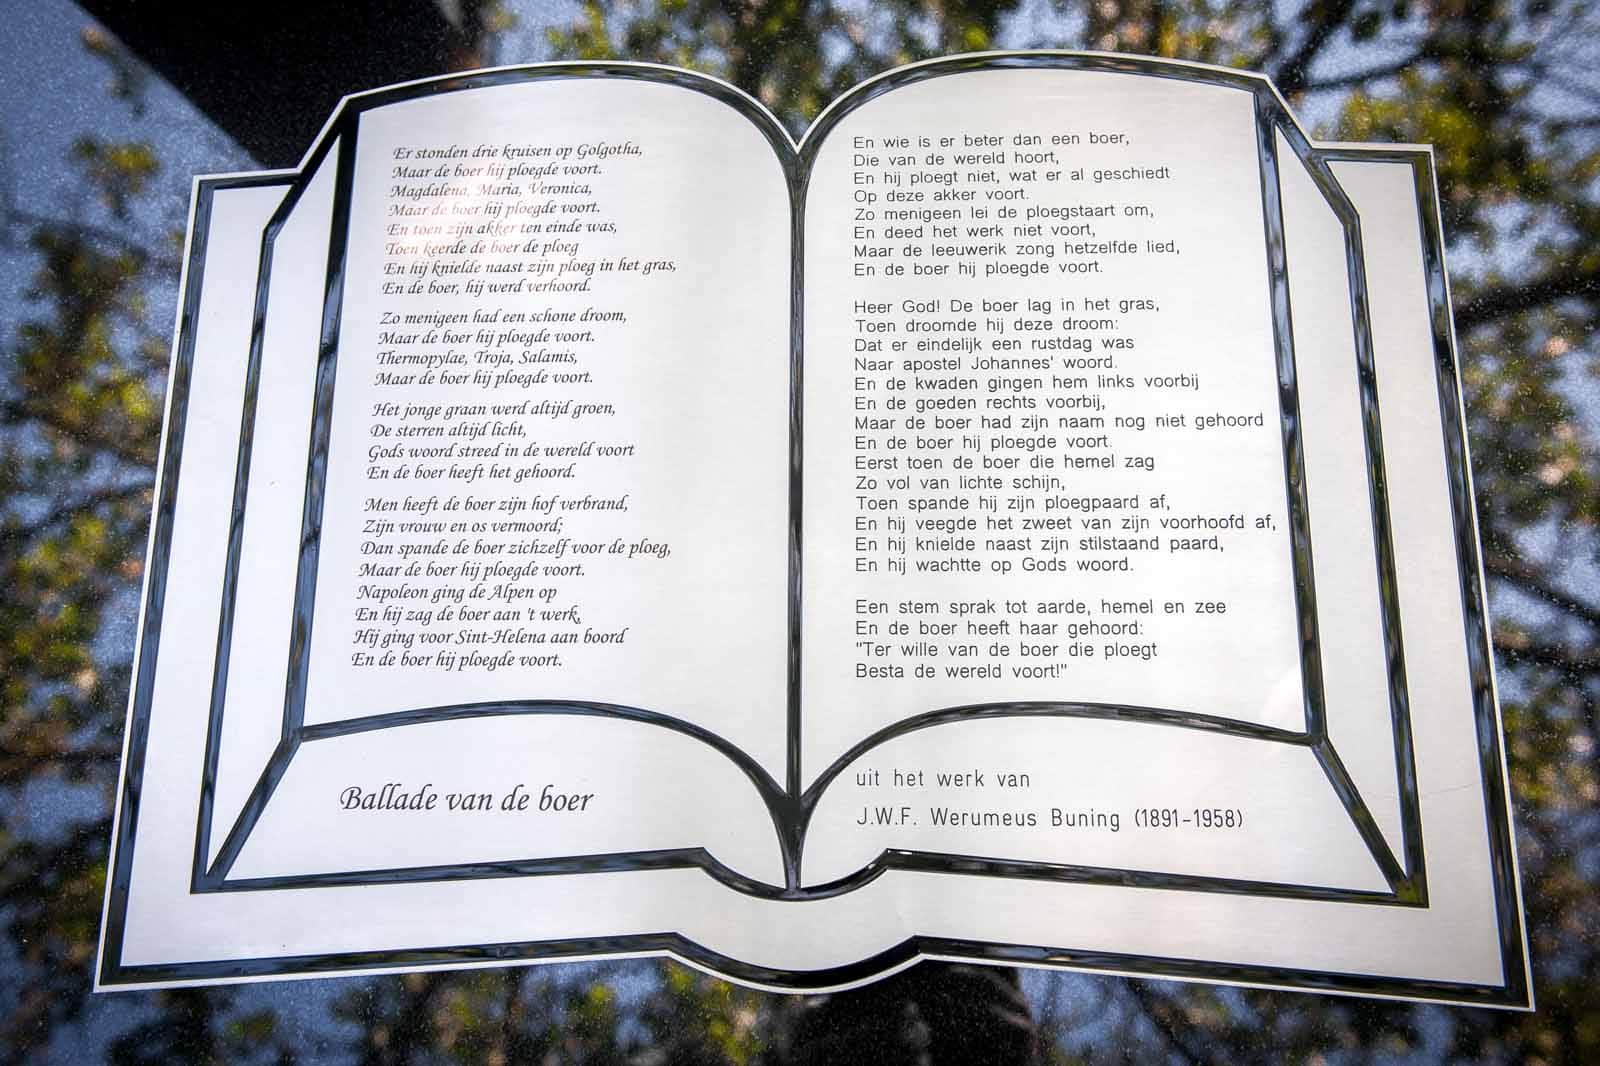 Er stonden drie kruisen op Golgotha,
Maar de boer hij ploegde voort.
Magdalena, Maria, Veronica,
Maar de boer hij ploegde voort.
En toen zijn akker ten einde was,
Toen keerde de boer de ploeg
En hij knielde naast zijn ploeg in het gras,
En de boer, hij werd verhoord.
Zo menigeen had een schone droom,
Maar de boer hij ploegde voort.
Thermopylae, Troja, Salamis,
Maar de boer hij ploegde voort.
Het jonge graan werd altijd groen,
De sterren altijd licht,
Gods woord streed in de wereld voort
En de boer heeft het gehoord.
Men heeft de boer zijn hof verbrand,
Zijn vrouw en os vermoord;
Dan spande de boer zichzelf voor de ploeg,
Maar de boer hij ploegde voort.
Napoleon ging de Alpen op
En hij zag de boer aan 't werk,
Hij ging voor Sint-Helena aan boord
En de boer hij ploegde voort.
Ballade van de boer
En wie is er beter dan een boer,
Die van de wereld hoort,
En hij ploegt niet, wat er al geschiedt
Op deze akker voort.
Zo menigeen lei de ploegstaart om,
En deed het werk niet voort,
Maar de leeuwerik zong hetzelfde lied,
En de boer hij ploegde voort.
Heer God! De boer lag in het gras,
Toen droomde hij deze droom:
Dat er eindelijk een rustdag was
Naar apostel Johannes' woord.
En de kwaden gingen hem links voorbij
En de goeden rechts voorbij,
Maar de boer had zijn naam nog niet gehoord
En de boer hij ploegde voort.
Eerst toen de boer die hemel zag
Zo vol van lichte schijn,
Toen spande hij zijn ploegpaard af,
En hij veegde het zweet van zijn voorhoofd af,
En hij knielde naast zijn stilstaand paard,
En hij wachtte op Gods woord.
Een stem sprak tot aarde, hemel en zee
En de boer heeft haar gehoord:
"Ter wille van de boer die ploegt
Besta de wereld voort!"
uit het werk van
J.W.F. Werumeus Buning (1891-1958)